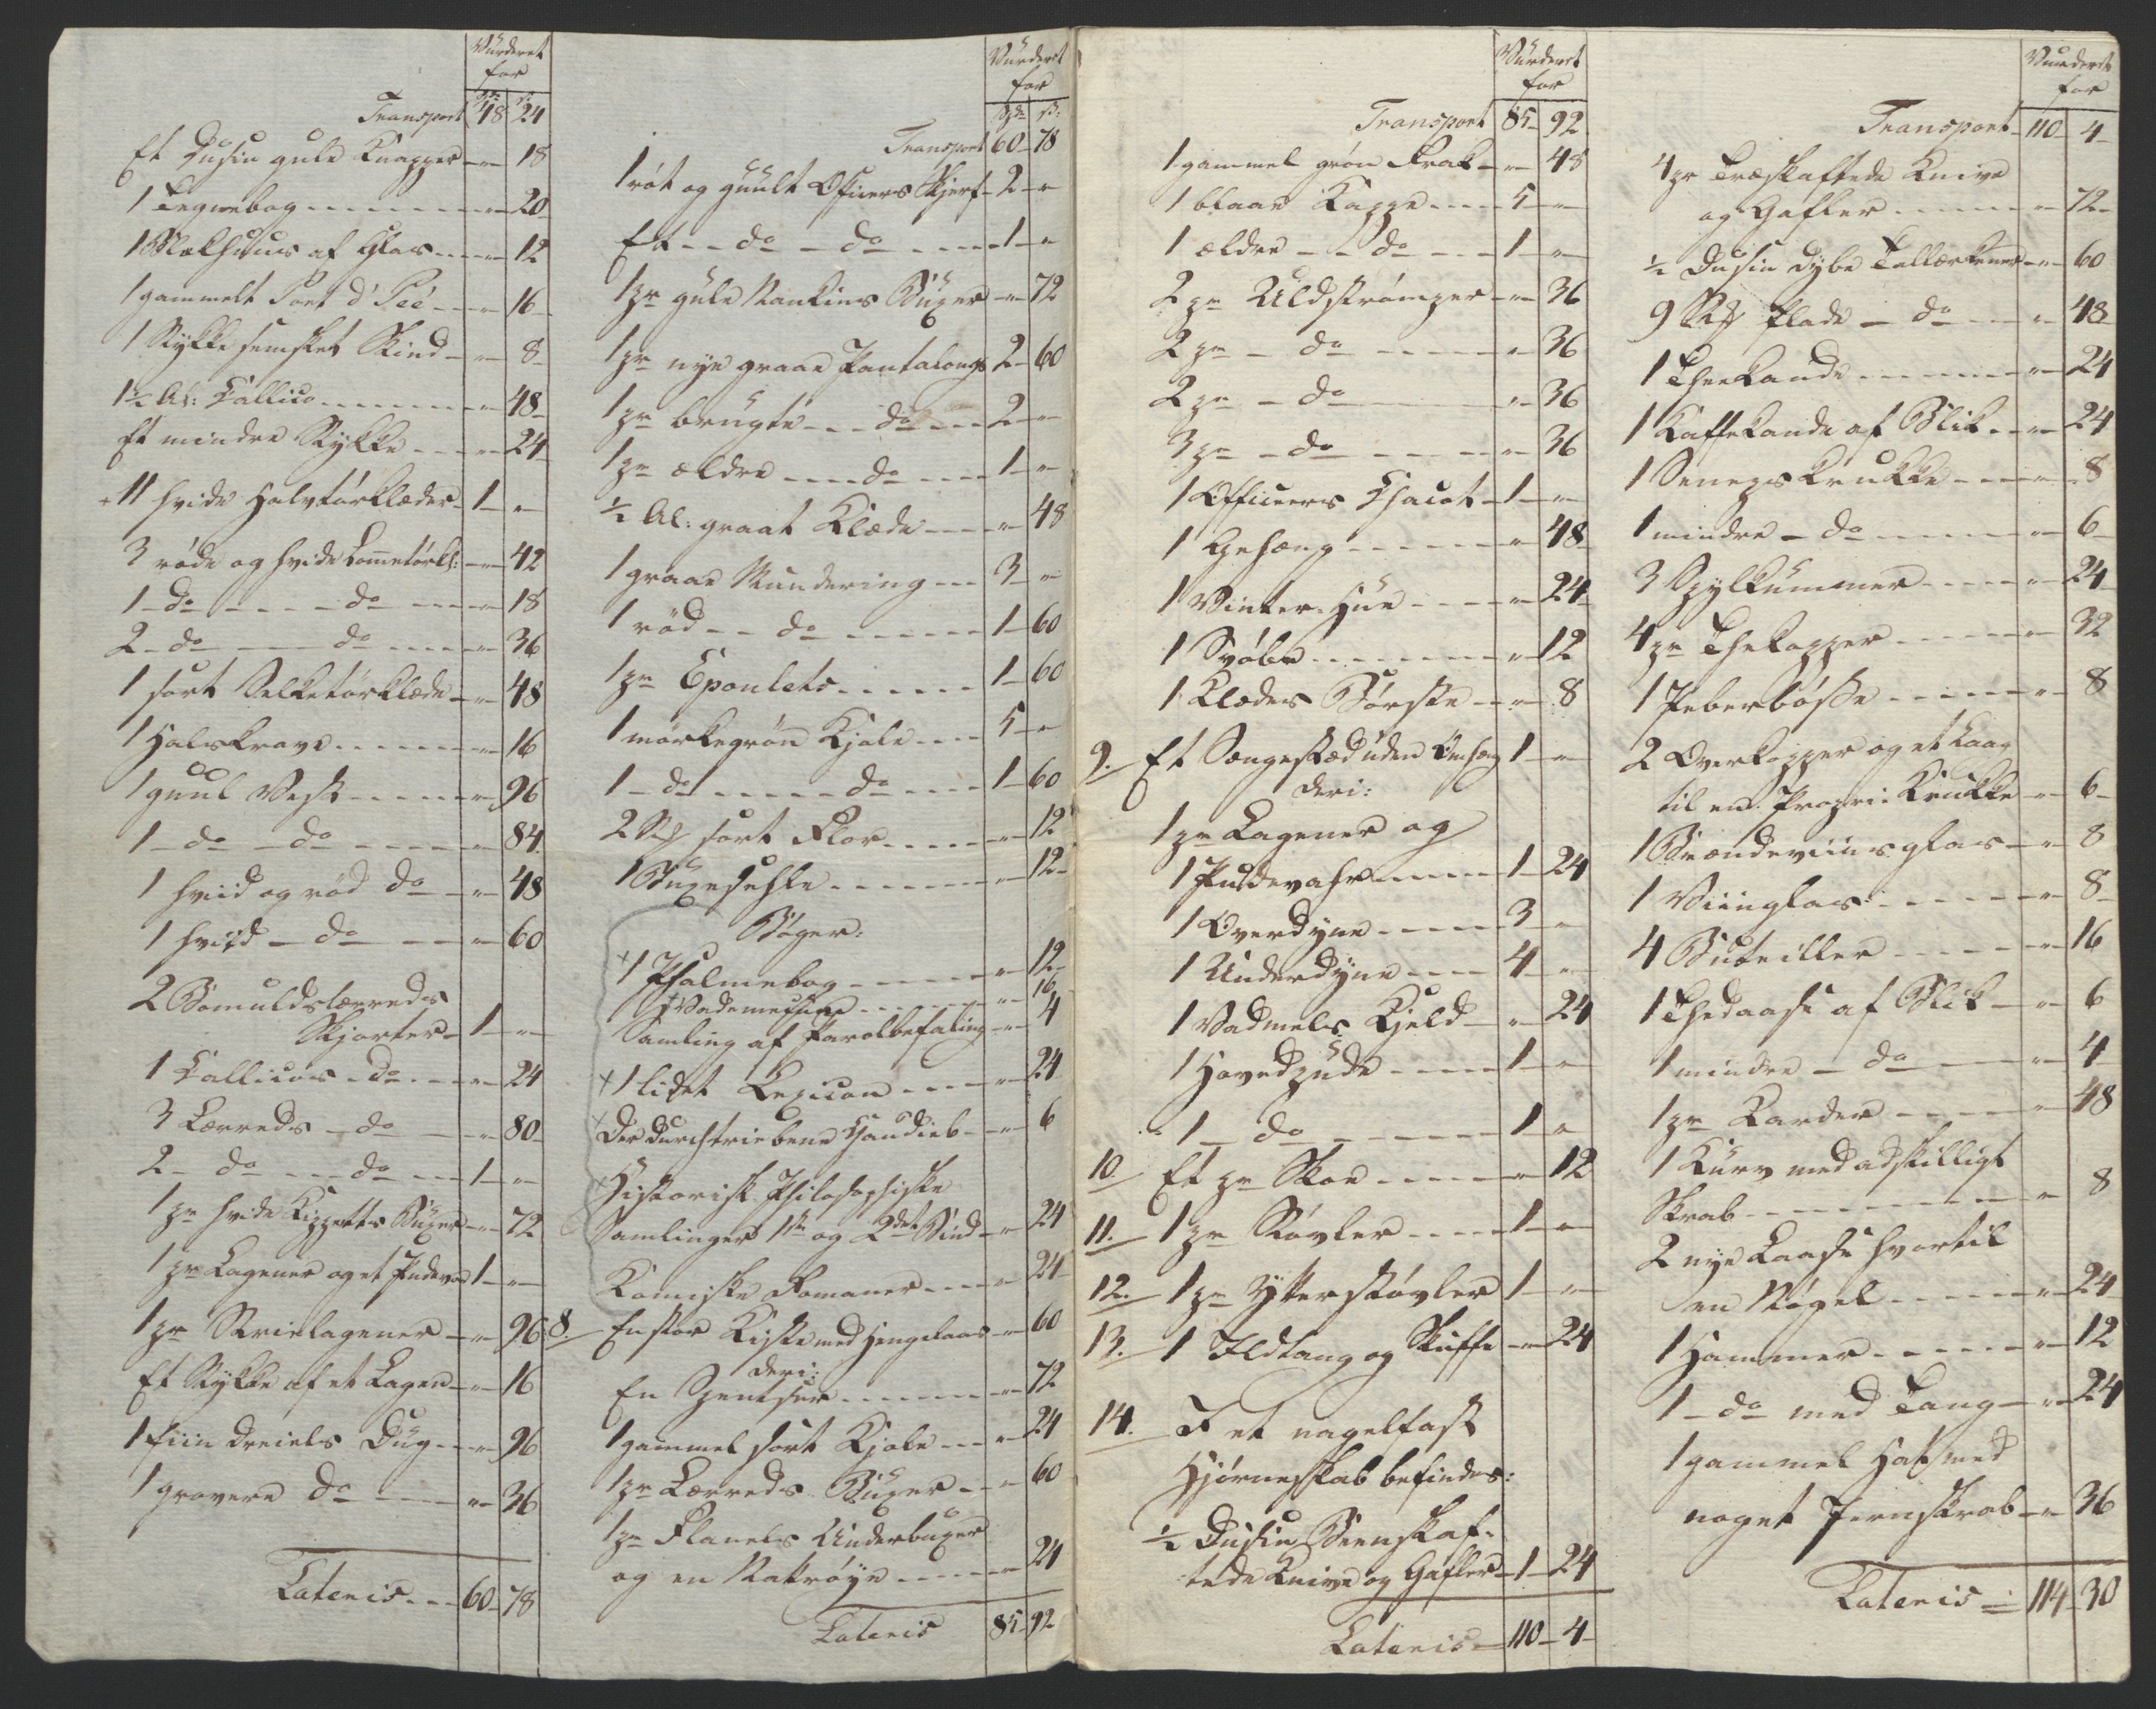 Vurderet
for
Spd s
Transport 48 24
Et Dusin gule Knapper - " - 18
1 Tegnebog - - - " - 20
1 Blækhuus af Glas - - - " - 12
1 gammelt Port d' Peé - - " - 16
1 Stykke semsket Skind - " - 8
1½ Al: Callico - - - " - 48
Et mindre Stykke - - - " - 24
11 hvide Halstørklæder - 1 - "
3 røde og hvide Lommetørkl: - " - 42
1 - do - - - do - - - " - 18
2 - do - - - do - - - " - 36
1 sort Silketørklæde - " - 48
1 Halskrave - - - " - 16
1 guul Vest - - - " - 96
1 - do - do - - - " - 84
1 hvid og rød do - " - 48
1 hvid - do - - " - 60
2 Bomuldslærreds
Skjorter - 1 - "
1 Callicos - do - - " - 24
3 Lærreds - do - - " - 80
2 - do - - - do - - 1 - "
1 pr hvide Buxer - " - 72
1 pr Lagener og et Pudevar 1 - "
1 pr Strielagener - " - 96
Et Stykke af et Lagen - " - 16
1 fiin Dreiels Dug - - " - 96
1 grovere do - - - " - 36
Lateris - - - 60 - 78
Vurderet
for
Spd s:
Transport 60 - 78
1 røt og guult Officeers Skjerf - 2 - "
Et - - do - do - - - 1 - "
1 pr gule Nankins Buxer - " - 72
1 pr nye graae Pantalongs 2 - 60
1 pr brugte - - do - - 2 - "
1 pr ældre - - - do - - - 1 - "
½ Al: graat Klæde - - - " - 48
1 graae Mundering - - - 3 - "
1 rød - - do - - - 1 - 60
1 pr Epoulets - - - 1 - 60
1 mørkegrøn Kjole - - - 5 - "
1 - do - - - do - - - 1 - 60
2 St sort Flor - - - " - 12
1 Buxesehle - - - " - 12
Bøger:
1 Psalmebog - - - " - 12
1 Vademecum - - - " - 16
Samling af Parolbefaling - " - 4
1 lidet Lexicon - - - " - 24
Der durchtriebene - " - 6
Historisk Philosophiske
Samlinger 1ste og 2det Bind - " - 24
Komiske Romaner - - - " - 24
8. En stor Kiste med Hengelaas - " - 60
deri:
En Spentser - - - " - 72
1 gammel sort Kjole - - - " - 24
1 pr Lærreds Buxer - - " - 60
1 pr Flanels Underbuxer
og en Nattrøye - - - " - 24
Lateris 85 - 92
Vurderet
for
Transport 85 - 92
1 gammel grøn Frak - " - 48
1 blaae Kappe - - - 5 - "
1 ældre - - do - - - 1 - "
2 pr Uldstrømper - " - 36
2 pr - do - - - " - 36
2 pr - do " - 36
3 pr - do - - - " - 36
1 Officeers Chacot - 1 - "
1 Gehæng - - - " - 48
1 Vinter-Hue - - - " - 24
1 Svøbe - - - " - 12
1 Klædes Børste - - " - 8
9. Et Sængested uden Omhæng 1 - "
deri:
1 pr Lagener og
1 Pudevahr - - - 1 - 24
1 Overdyne - - - 3 - "
1 Underdyne - - - 4 - "
1 Vadmels Kjeld - - " - 24
1 Hovedpude - - - 1 - "
1 - do - - - 1 - "
10. Et pr Skoe - - - " - 12
11. 1 pr Støvler - - - 1 - "
12. 1 pr Ytterstøvler 1 - "
13. 1 Ildtang og Skuffe - " - 24
14. I et nagelfast
Hjørneskab befindes:
½ Dusin Beenskaf-
tede Knive og Gafler - 1 - 24
Lateris - 110 - 4
Vurderet
for
Transport - 110 - 4
4 pr Træskaftede Knive
og Gafler - - - " - 72
½ Dusin dybe Tallærkener - " - 60
9 St flade - do - - - " - 48
1 Theekande - - - " - 24
1 Kaffekande af Blik - - " - 24
1 Senepskrukke - - - " - 8
1 mindre - do - - - " - 6
3 Spylkummer - - - " - 24
4 pr Thekopper - - - " - 32
1 Peberbøsse - - - " - 8
2 Overkopper og et Laag
til en Krukke - " - 6
1 Brændeviinsglas - " - 8
1 Viinglas - - - " - 8
4 Buteiller - - - " - 16
1 Thedaase af Blik - " - 6
1 mindre - do - " - 4
1 pr Karder - - - " - 48
1 Kurv med adskilligt
Skrab - - - " 8
2 nye Laase hvortil
en Nøgel - - - " - 24
1 Hammer - - - " - 12
1 - do med Tang - " - 24
1 gammel med
noget Jernskrab - " - 36
Lateris - 114 - 30